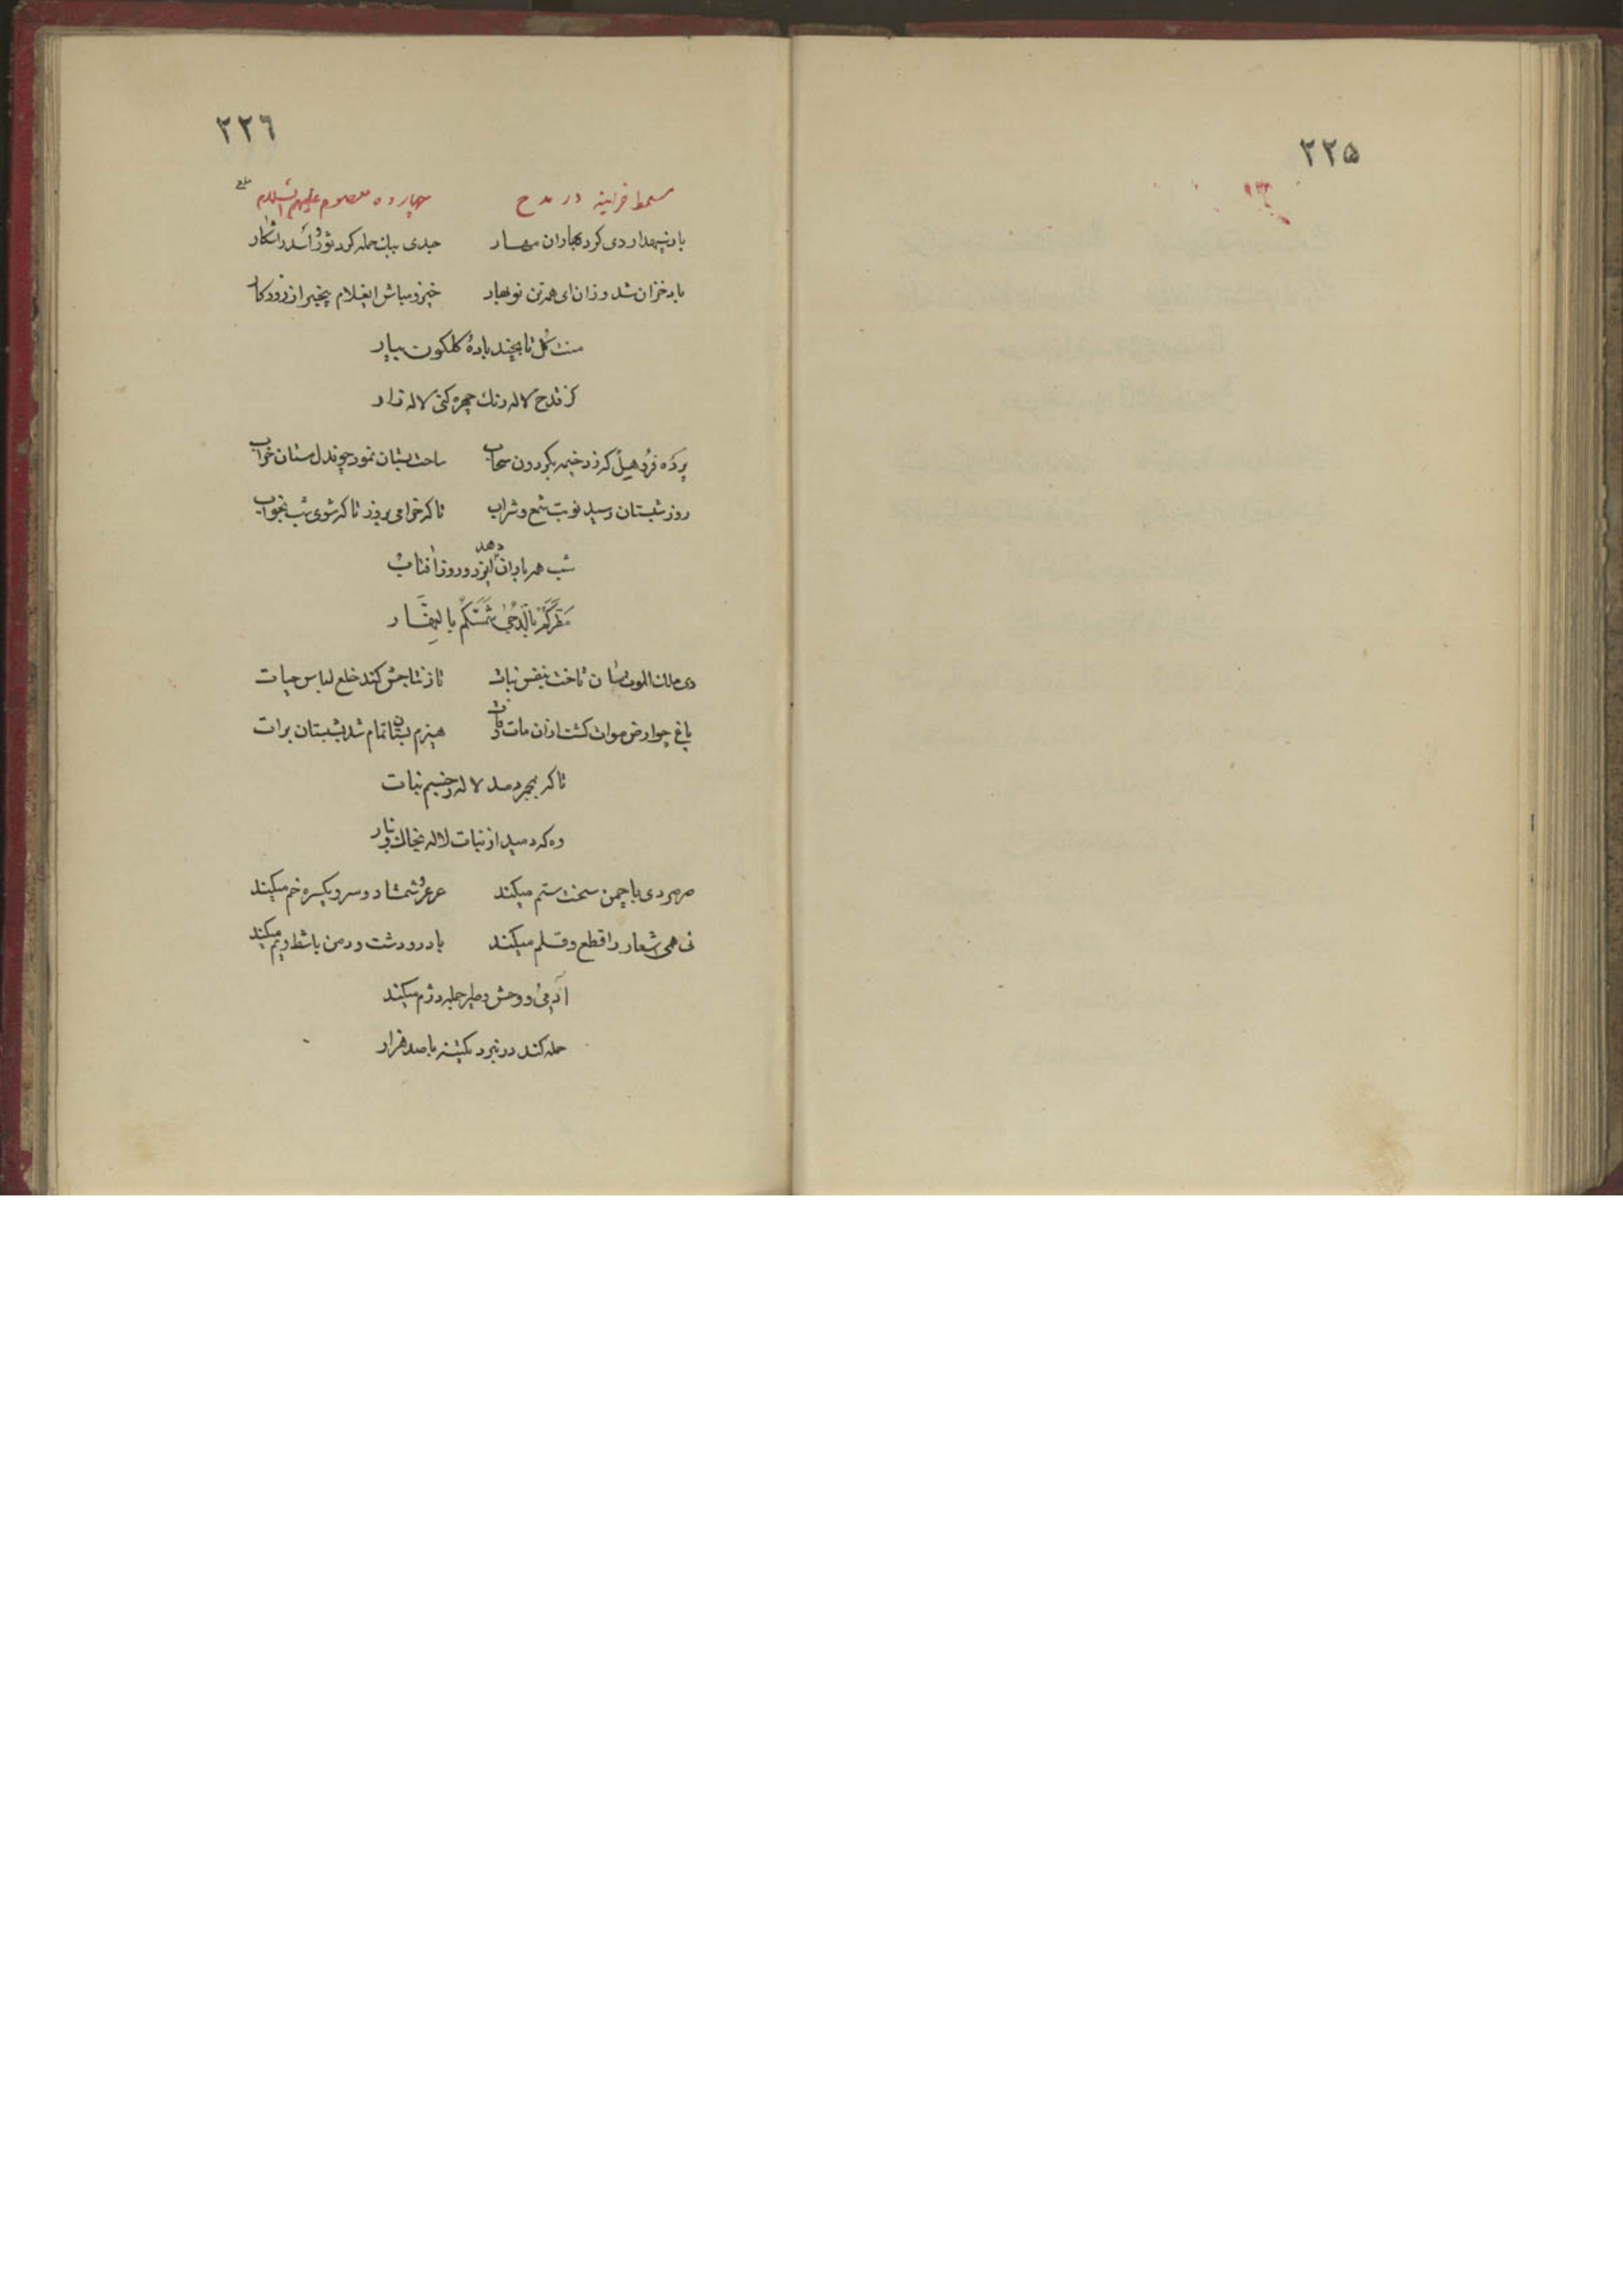 ٢٢٥
٩٣
٢٢٦
مسمط خزانیه در مدح چهارده معصوم علیهم السلام
باد سپهدار دی کرد بهاران مهار جدی بیک حمله کرد ثور و اسد را شکار
باد خزان شد وزان ای همه تن نوبهار خیز و مباش ایغلام بیخبر از زود کار
منت گل تا بچند بادهٔ گلگون بیار
کز قدح لاله رنگ چهره کنی لاله زار
پرده فرو هیل که زد خیمه بگردون سحاب ساحت بستان نمود چون دل مستان خراب
روز شبستان رسید نوبت شمع و شراب تا که خرامی بروز تا که شوی شب بخواب
شب همه باران دهد ایزد و روز آفتاب
مطرکم بالدجی شمسکم بالنهار
دی ملک الموت سان تاخت بنفس نبات تا ز نتاجش کند خلع لباس حیات
باغ چو ارض موات گشت از آن مات و فات هیزم بستان تمام شد بشبستان برات
تا که بمجمر دمد لاله و خیم نبات
وه که دمید از نبات لاله بخاک و بنار
صرصر دی با چمن سخت ستم میکند عرعر و شمشاد و سرو یکسره خم میکند
نی همی اشعار را قطع و قلم میکند بادر و دشت و دمن با شط و یم میکند
آدمی و وحش و طیر جمله دژم میکند
حمله کند در نبرد یکتنه با صد هزار